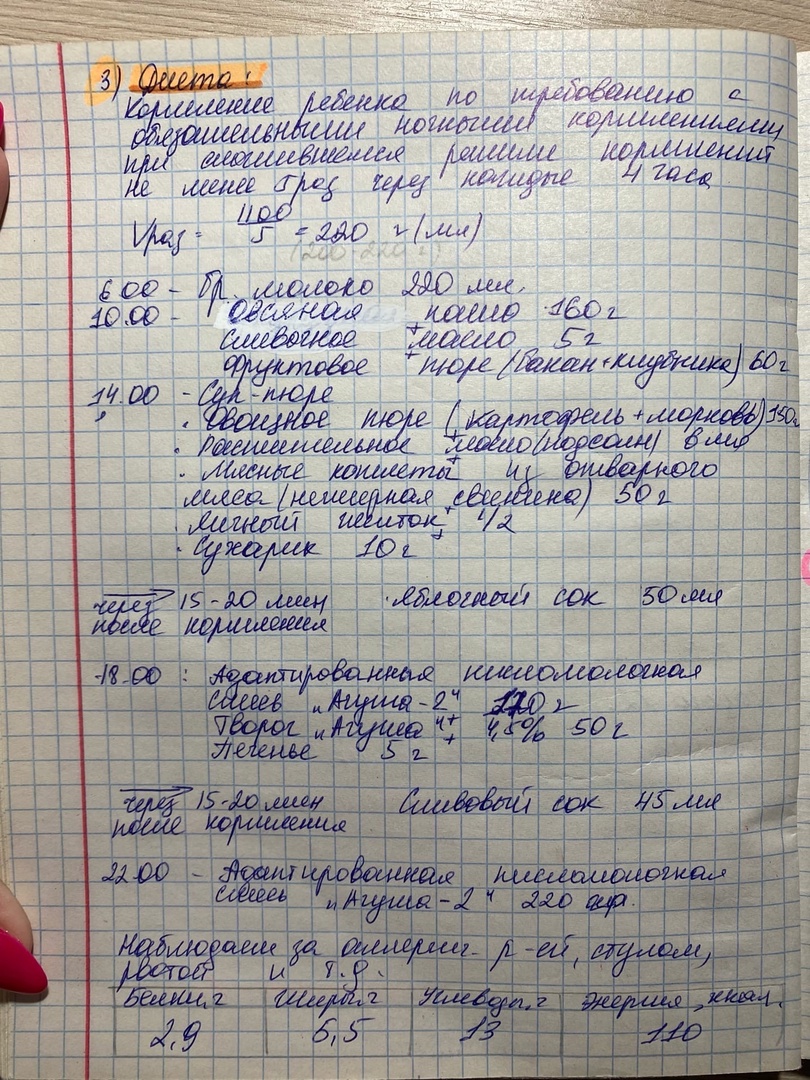 3) Диета:
Кормление ребенка по требованию с
обязательными ночными кормлениями
при сложившемся режиме кормлений
не менее 5 раз через каждые 4 часа
Vраз = 1100/5 = 220 г (мл)
(200-220 г)
6.00 - Гр. молоко 220 мл.
10.00 - Овсяная каша 160 г
Сливочное + масло 5 г
фруктовое + пюре (банан+клубника) 60 г
14.00 - Суп-пюре
· Овощное пюре (картофель + морковь) 150 г
· Растительное + масло (подсолн) 6 мл
· Мясные + котлеты из отварного
мяса (нежирная свинина) 50 г
· Яичный желток + 1/2
· Сухарик 10 г +
через 15-20 мин · Яблочный сок 50 мл
после кормления
18.00 : Адаптированная кисломолочная
смесь "Агуша-2" 170 г
Творог "Агуша" + 4,5% 50 г
Печенье 5 г +
через 15-20 мин Сливовый сок 45 мл
после кормления
22.00 - Адаптированная кисломолочная
смесь "Агуша-2" 220
Наблюдаем за аллергич. р-ей, стулом,
рвотой и т.д.
Белки,г Жиры,г Углеводы,г Энергия, ккал.
2,9 6,5 13 110